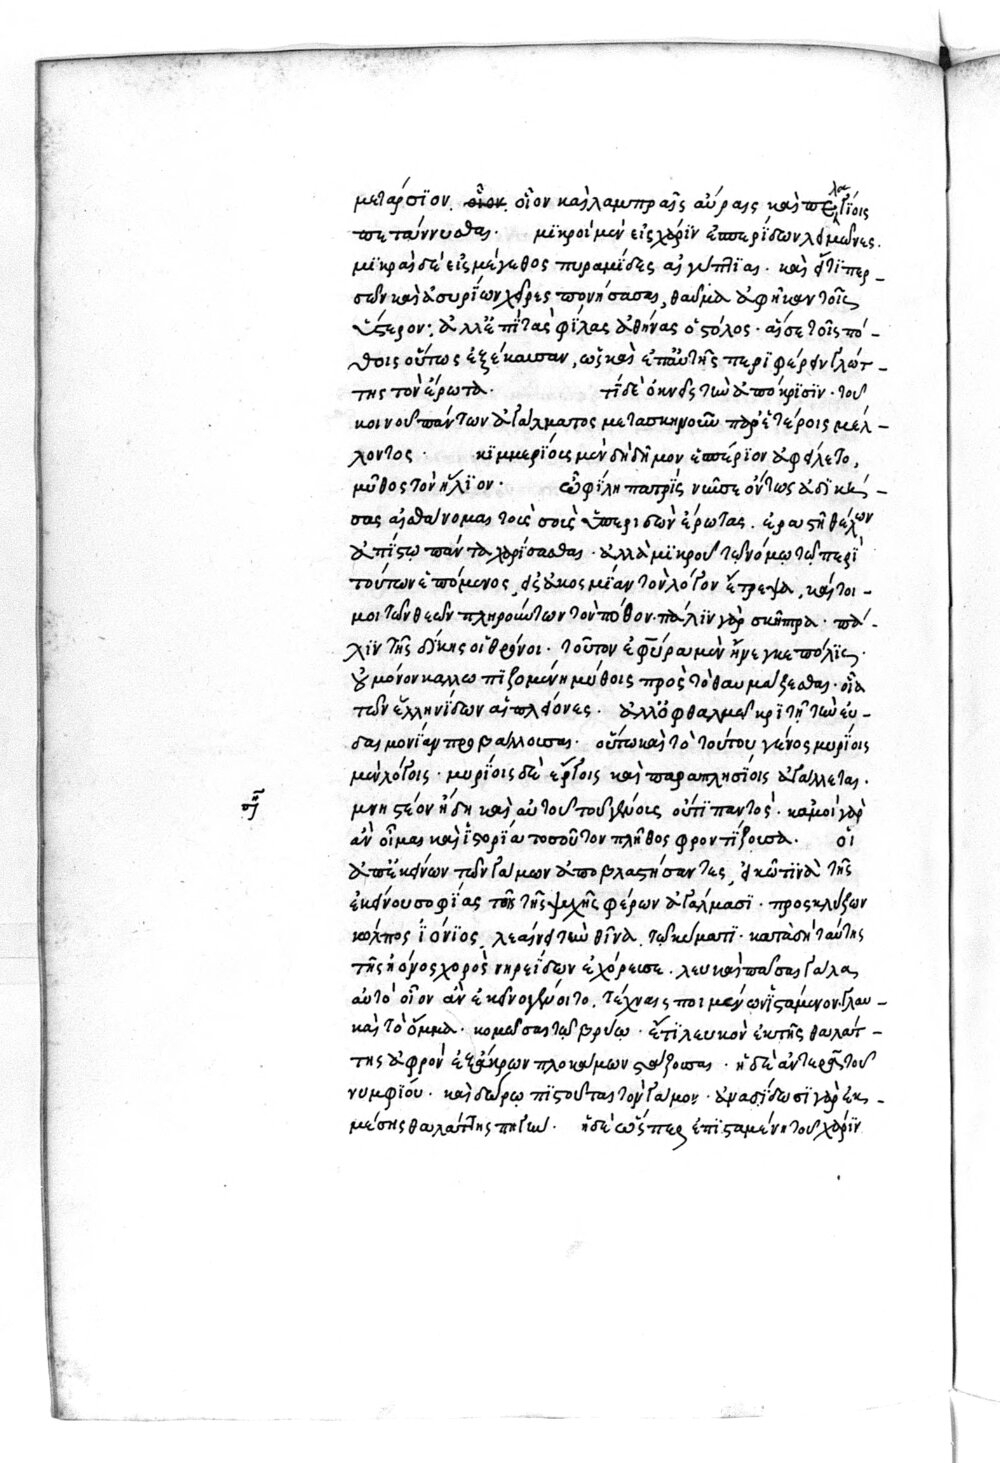 μετάρσϊον. οἷον καὶ λαμπραῖς αὔραις καὶ πελαγΐοις
πετάννυσθαι. μϊκροὶ μὲν εἰς χάρϊν ἑσπερίδων λειμῶνες.
μϊκραὶ δὲ εἰς μέγεθος πυραμΐδες αἰγύπτϊαι. καὶ εἴτϊ περ-
σῶν καὶ ἀσυρΐων χεῖρες πονήσασαι, θαῦμα ἀφῆκαν τοῖς
ὕστερον. ἀλλ' ἐπῒ τὰς φΐλας ἀθήνας ὁ στόλος. αἵ σε τοῖς πό-
θοις οὕτως ἐξέκαυσαν, ὡς καὶ ἐπ' αὐτῆς περϊφέρειν γλώτ-
της τὸν ἔρωτα. τΐ δὲ ὀκνεῖς τὴν ἀπόκρϊσϊν. τοῦ
κοινοῦ πάντων ἀγάλματος μετασκηνοῦν παρ' ἑτέροις μέλ-
λοντος. κϊμμερΐοις μὲν δὴ δῆμον ἑσπέρϊον ἀφείλετο,
μῦθος τὸν ἥλϊον. ὦ φΐλη πατρὶς νῦν σε ὄντως ἀδϊκή-
σας αἰσθάνομαι τοῖς σοῖς ὑπεριδὼν ἔρωτας. ἐραστῇ θέλων
ἀπΐστῳ πάντα χαρίσασθαι. ἀλλὰ μϊκροῦ τῷ νόμῳ τῷ περῒ
τούτων ἑπόμενος, εἰς θάκος μΐαν τὸν λόγον ἔτρεψα, καί τοι
μοι τῶν θεῶν πληρούντων τὸν πόθον. πάλϊν γὰρ σκῆπτρα. πά-
λϊν τῆς δΐκης οἱ θρόνοι. τοῦτον ἐφύρα μὲν ἤνεγκε πόλϊς.
οὐ μόνον κάλλει πϊζομένη μύθοις πρὸς τὸ θαυμάζεσθαι. οἷα
τῶν ἑλληνΐδων αἱ πλείονες. ἀλλ' ὀφθαλμῷ κρϊτῇ τὴν εὐ-
δαιμονΐαν προβάλλουσαι. οὕτω καὶ τὸ τούτου γένος μυρΐοις
μὲν λόγοις. μυρΐοις δὲ ἔργοις καὶ παραπλησΐοις ἀγάλλεται.
μνηστέον ἤδη καὶ αὐτοῦ τοῦ γένους οὔτϊ παντός. κάμοι γὰρ
ἂν οἶμαι καὶ ἱστορΐα τοσοῦτον πλῆθος φροντΐζουσα. οἱ
ἀπ' ἐκείνων τῶν γάμων ἀποβλαστήσαντες, εἰκῶ τϊνὰ τῆς
ἐκείνου σοφΐας τοῖς τῆς ψυχῆς φέρων ἀγάλμασϊ. προσκλύζων
κόλπος ἰόνϊος, λεαίνει τὴν θῖνα τῷ κύματϊ. κατὰ δὴ ταύτης
τῆς ἠόνος χορὸς νηρεΐδων ἐχόρευσε. λευκαὶ πᾶσαι γάλα
αὐτὸ οἷον ἂν ἐκεῖνο γένοιτο. τέχναις ποιμένων ἱστάμενον. γλαυ-
καὶ τὸ ὄμμα. κομῶσαι τῷ βρύῳ. ἔτϊ λευκὸν ἐκ τῆς θαλάτ-
της ἀφρὸν ἐξ ἄκρων πλοκάμων στάζουσαι. ἡ δὲ ἀντερᾷ τοῦ
νυμφΐου. καὶ δώρῳ πϊστοῦται τὸν γάμον. ἀναδΐδωσϊ γὰρ ἐκ
μέσης θαλάττης πηγὴν. ἡ δὲ ὥσπερ ἐπϊσταμένη τοῦ χάρϊν